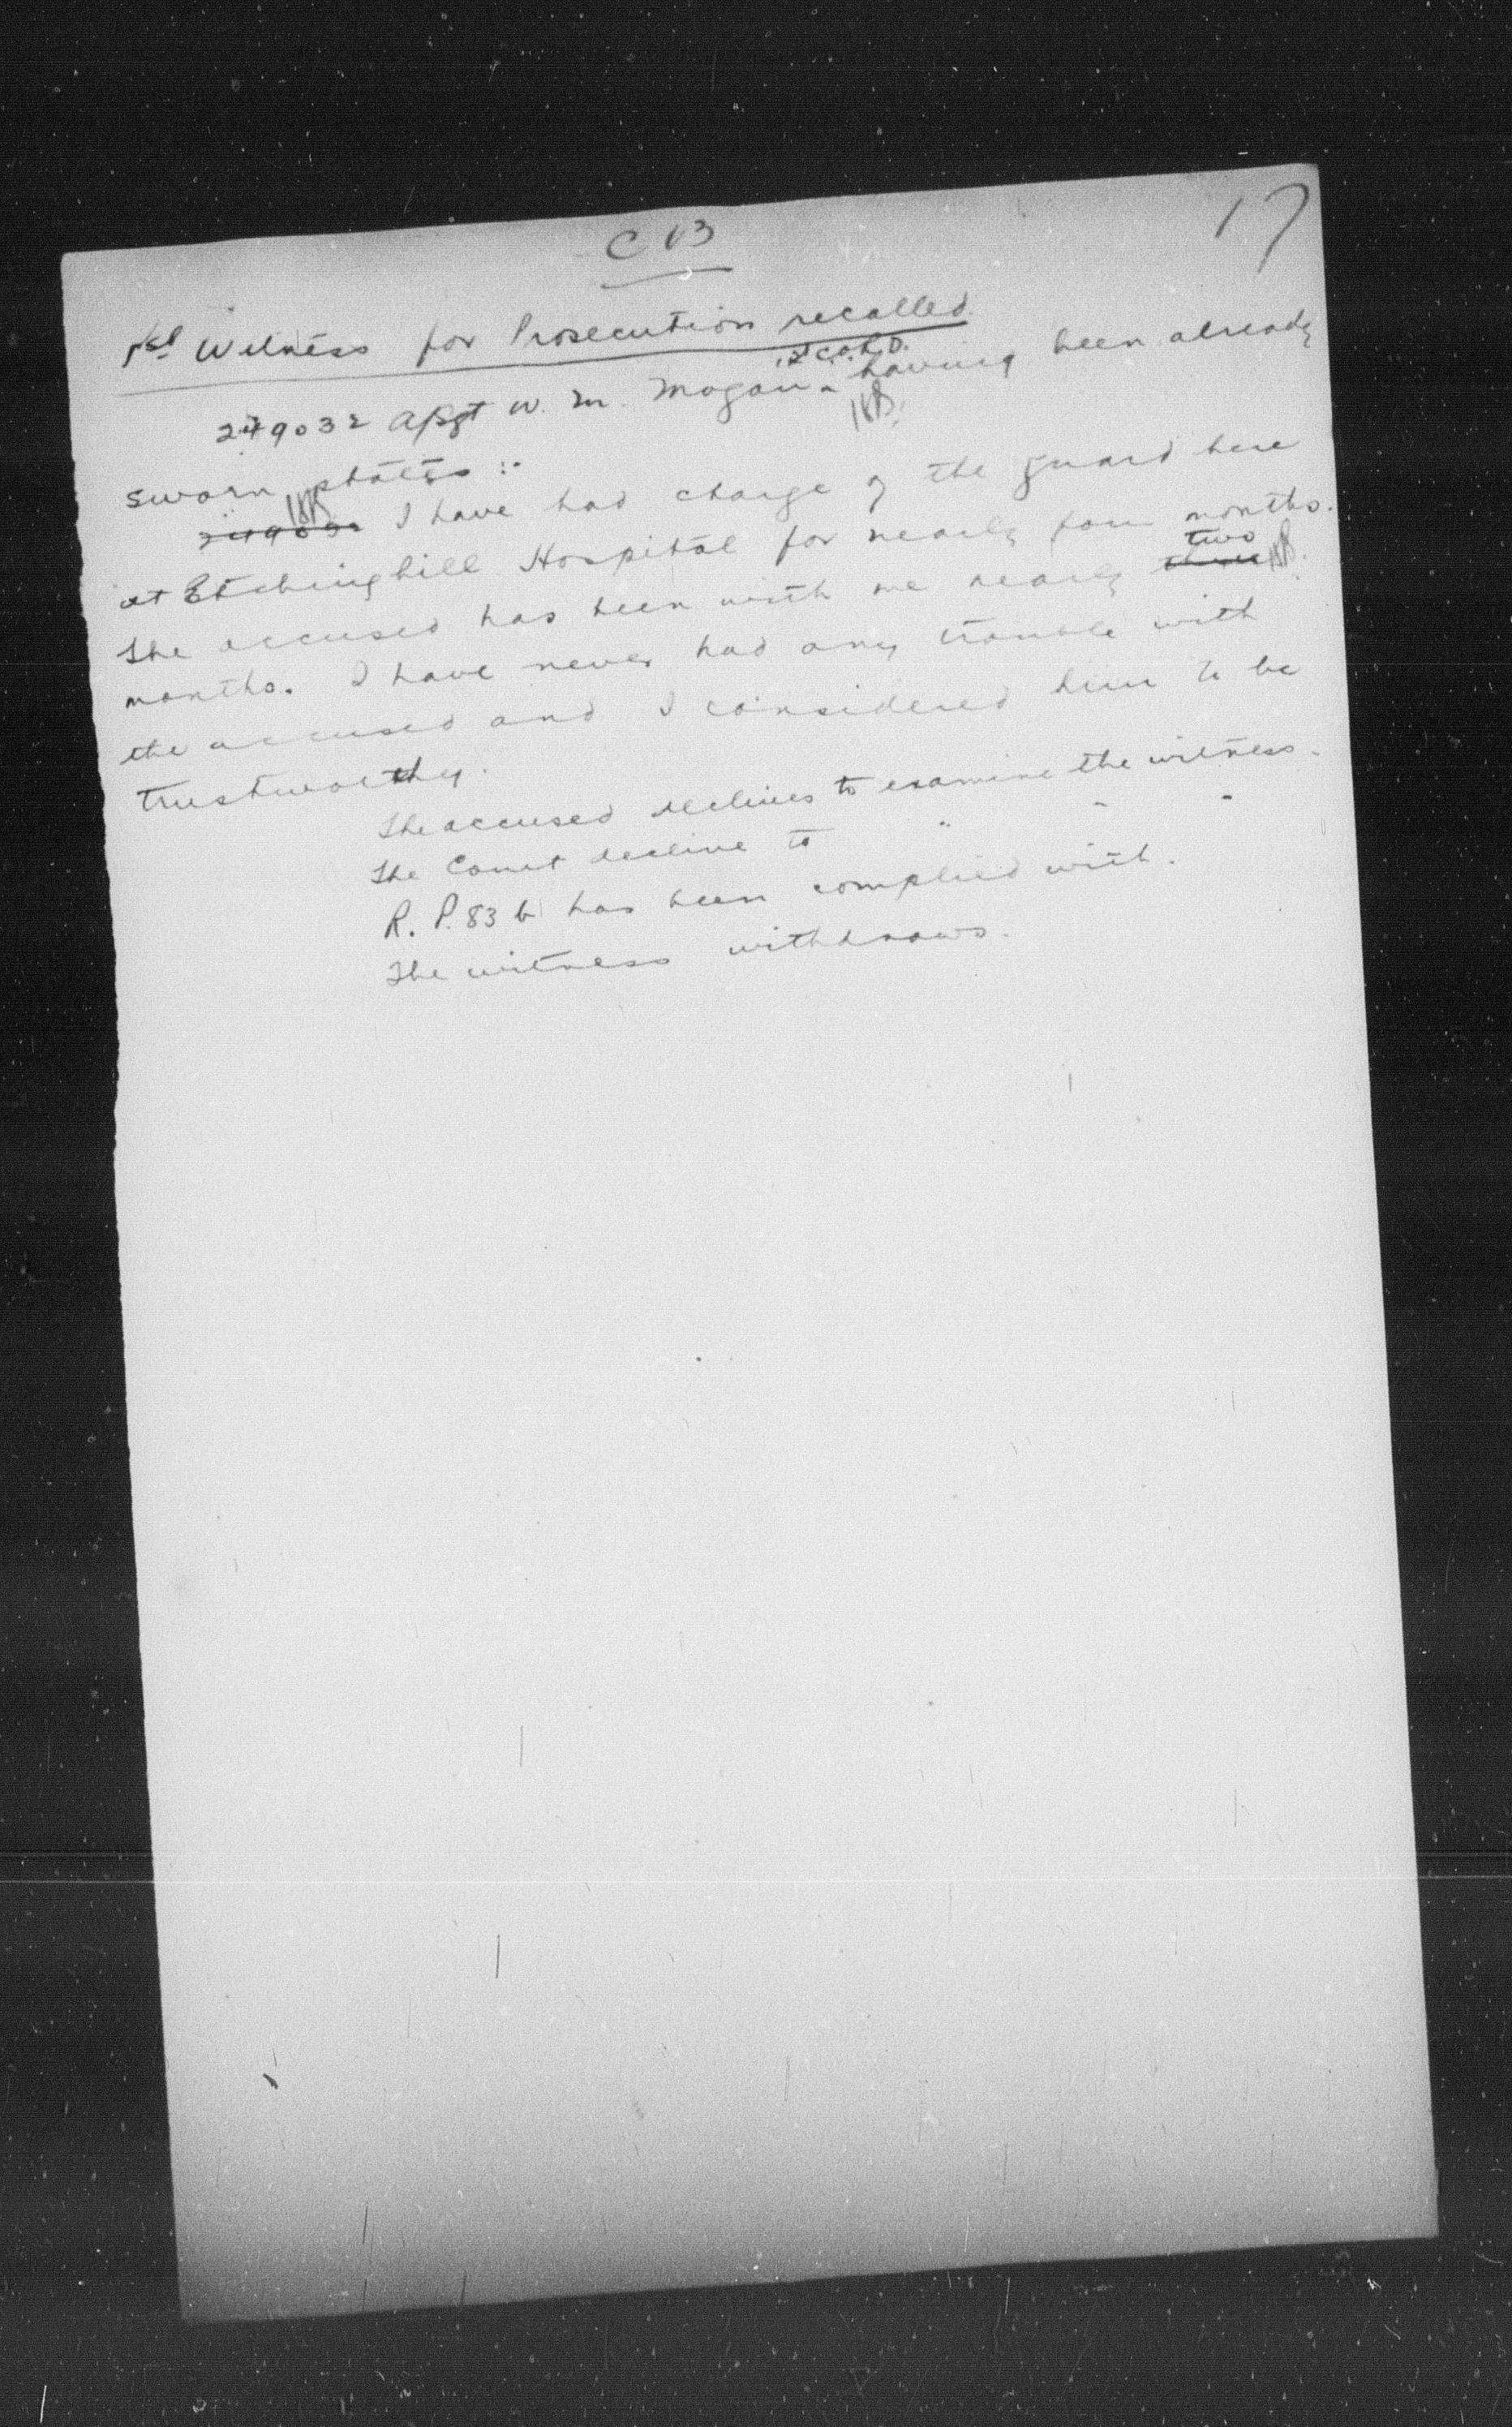 17
C 13
1st Witness for Prosecution recalled.
1st C.O.R.D.
249032 A/Sgt W. M. Mogan - having been already
sworn states :-
249032 I have had charge of the guard here
at Etchinghill Hospital for nearly four months.
two
The accused has been with me nearly three
months. I have never had any trouble with
the accused and I considered him to be
trustworthy.
The accused declines to examine the witness.
The Court decline to " " "
R. P. 83 b has been complied with.
The witness withdraws.